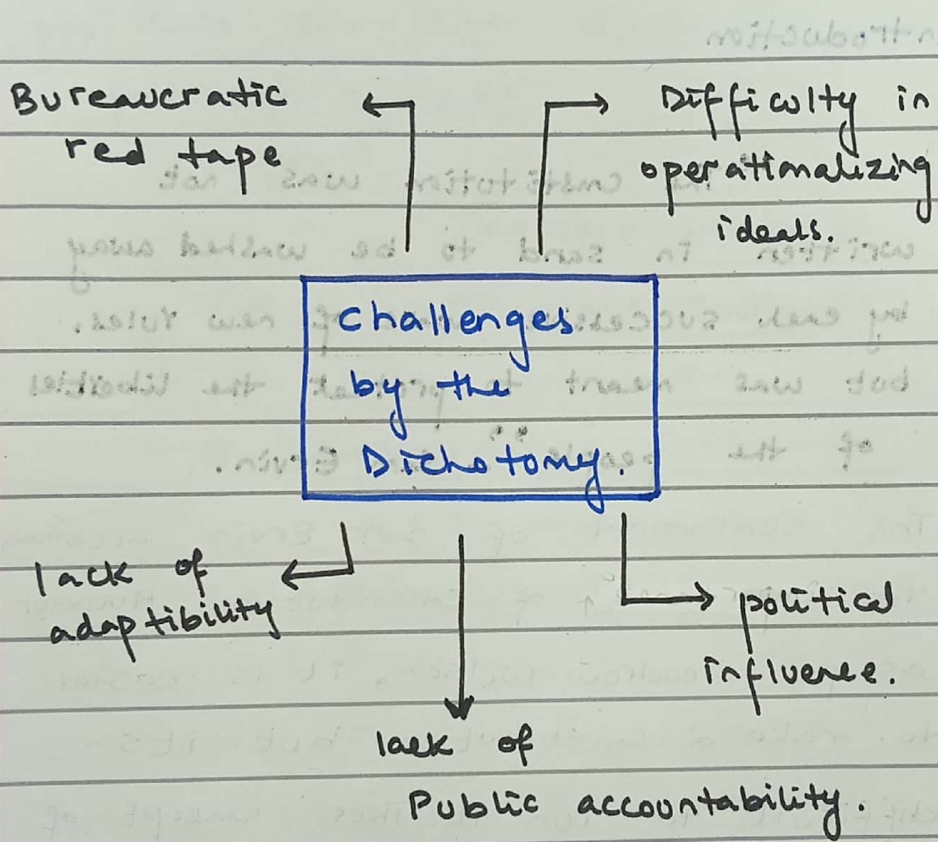 Bureaucratic
red tape
Difficulty in
operationalizing
ideals.
Challenges
by the
Dichotomy.
lack of
adaptibility
political
influence.
lack of
Public accountability.